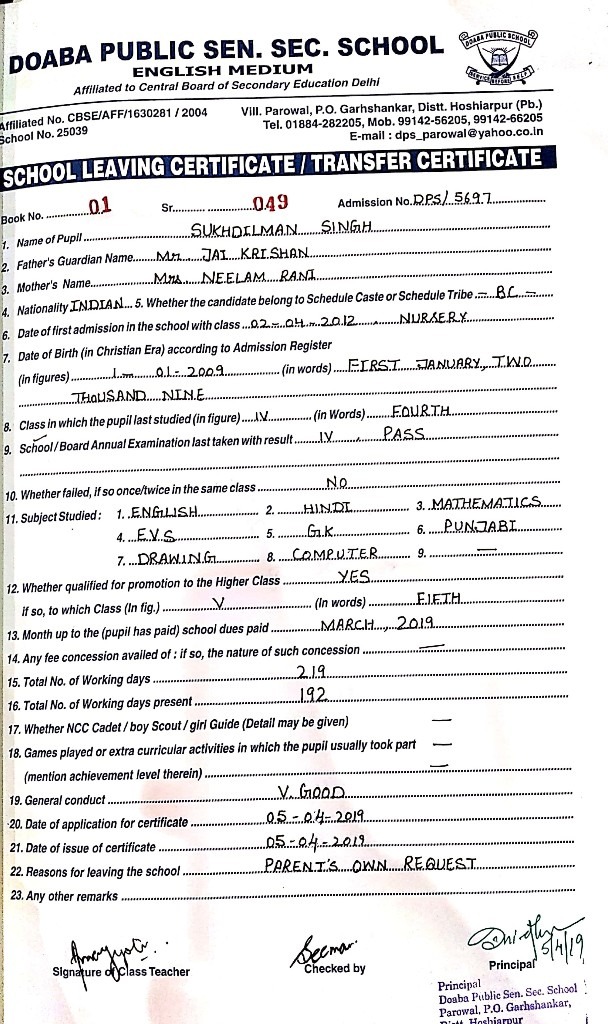 DOABA PUBLIC SEN. SEC. SCHOOL
ENGLISH MEDIUM
Affiliated to Central Board of Secondary Education Delhi
Affiliated No. CBSE/AFF/1630281 / 2004
School No. 25039
Vill. Parowal, P.O. Garhshankar, Distt. Hoshiarpur (Pb.)
Tel. 01884-282205, Mob. 99142-56205, 99142-66205
E-mail : dps_parowal@yahoo.co.in
SCHOOL LEAVING CERTIFICATE / TRANSFER CERTIFICATE
Book No. 01 Sr. 049 Admission No. DPS/5697
1. Name of Pupil SUKHDILMAN SINGH
2. Father's Guardian Name Mr. JAI KRISHAN
3. Mother's Name Mrs. NEELAM RANI
4. Nationality INDIAN 5. Whether the candidate belong to Schedule Caste or Schedule Tribe - BC -
6. Date of first admission in the school with class 02-04-2012 NURSERY
7. Date of Birth (in Christian Era) according to Admission Register
(in figures) 1-01-2009 (in words) FIRST JANUARY, TWO
THOUSAND NINE
8. Class in which the pupil last studied (in figure) IV (in Words) FOURTH
9. School / Board Annual Examination last taken with result IV, PASS
10. Whether failed, if so once/twice in the same class NO
11. Subject Studied : 1. ENGLISH 2. HINDI 3. MATHEMATICS
4. E.V.S 5. G.K 6. PUNJABI
7. DRAWING 8. COMPUTER 9. —
12. Whether qualified for promotion to the Higher Class YES
if so, to which Class (In fig.) V (In words) FIFTH
13. Month up to the (pupil has paid) school dues paid MARCH, 2019
14. Any fee concession availed of : if so, the nature of such concession —
15. Total No. of Working days 219
16. Total No. of Working days present 192
17. Whether NCC Cadet / boy Scout / girl Guide (Detail may be given) —
18. Games played or extra curricular activities in which the pupil usually took part —
(mention achievement level therein) —
19. General conduct V. GOOD
20. Date of application for certificate 05-04-2019
21. Date of issue of certificate 05-04-2019
22. Reasons for leaving the school PARENT'S OWN REQUEST
23. Any other remarks
Seema 5/4/19
Signature of Class Teacher Checked by Principal
Principal
Doaba Public Sen. Sec. School
Parowal, P.O. Garhshankar,
Distt. Hoshiarpur